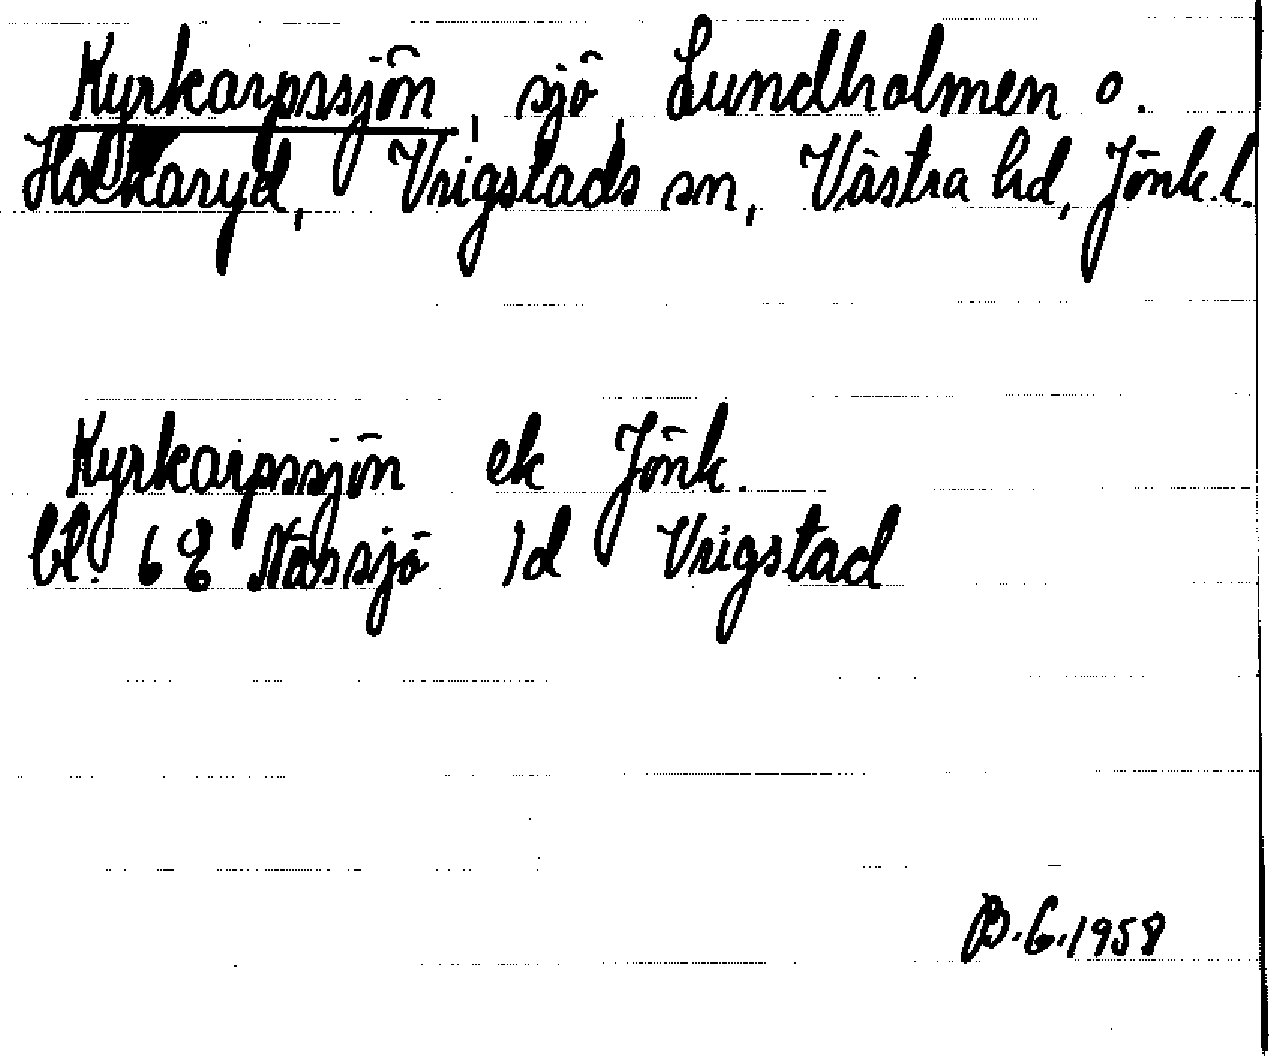 Kyrkarpssjön, sjö Lundholmen o.
Hockaryd, Vrigstads sn, Västra hd, Jönk.l.
Kyrkarpssjön ek Jönk.
bl. 6E Nässjö 1d Vrigstad
B.G.1958